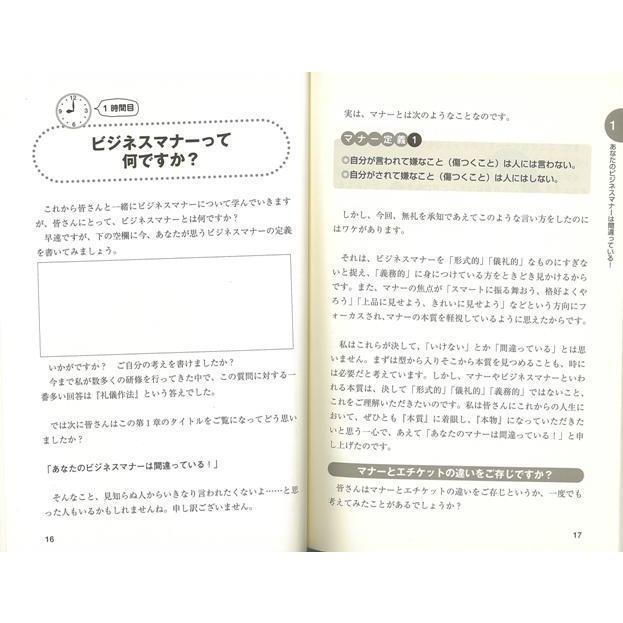 12
9
3
6
1時間目
ビジネスマナーって
何ですか？
これから皆さんと一緒にビジネスマナーについて学んでいきます
が、皆さんにとって、ビジネスマナーとは何ですか？
早速ですが、下の空欄に今、あなたが思うビジネスマナーの定義
を書いてみましょう。
いかがですか？　ご自分の考えを書けましたか？
今まで私が数多くの研修を行ってきた中で、この質問に対する一
番多い回答は『礼儀作法』という答えでした。
では次に皆さんはこの第1章のタイトルをご覧になってどう思い
ましたか？
「あなたのビジネスマナーは間違っている！」
そんなこと、見知らぬ人からいきなり言われたくないよ……と思
った人もいるかもしれませんね。申し訳ございません。
16
実は、マナーとは次のようなことなのです。
マナー定義1
◎自分が言われて嫌なこと（傷つくこと）は人には言わない。
◎自分がされて嫌なこと（傷つくこと）は人にはしない。
しかし、今回、無礼を承知であえてこのような言い方をしたのに
はワケがあります。
それは、ビジネスマナーを「形式的」「儀礼的」なものにすぎな
いと捉え、「義務的」に身につけている方をときどき見かけるから
です。また、マナーの焦点が「スマートに振る舞おう、格好よくや
ろう」「上品に見せよう、きれいに見せよう」などという方向にフ
ォーカスされ、マナーの本質を軽視しているように思えたからです。
私はこれらが決して、「いけない」とか「間違っている」とは思
いません。まずは型から入りそこから本質を見つめることも、時に
は必要だと考えています。しかし、マナーやビジネスマナーといわ
れる本質は、決して「形式的」「儀礼的」「義務的」ではないこと、
これをご理解いただきたいのです。私は皆さんにこれからの人生に
おいて、ぜひとも『本質』に着眼し、『本物』になっていただきた
いと思う一心で、あえて「あなたのマナーは間違っている！」と申
し上げたのです。
マナーとエチケットの違いをご存じですか？
皆さんはマナーとエチケットの違いをご存じというか、一度でも
考えてみたことがあるでしょうか？
17
1
あなたのビジネスマナーは間違っている！